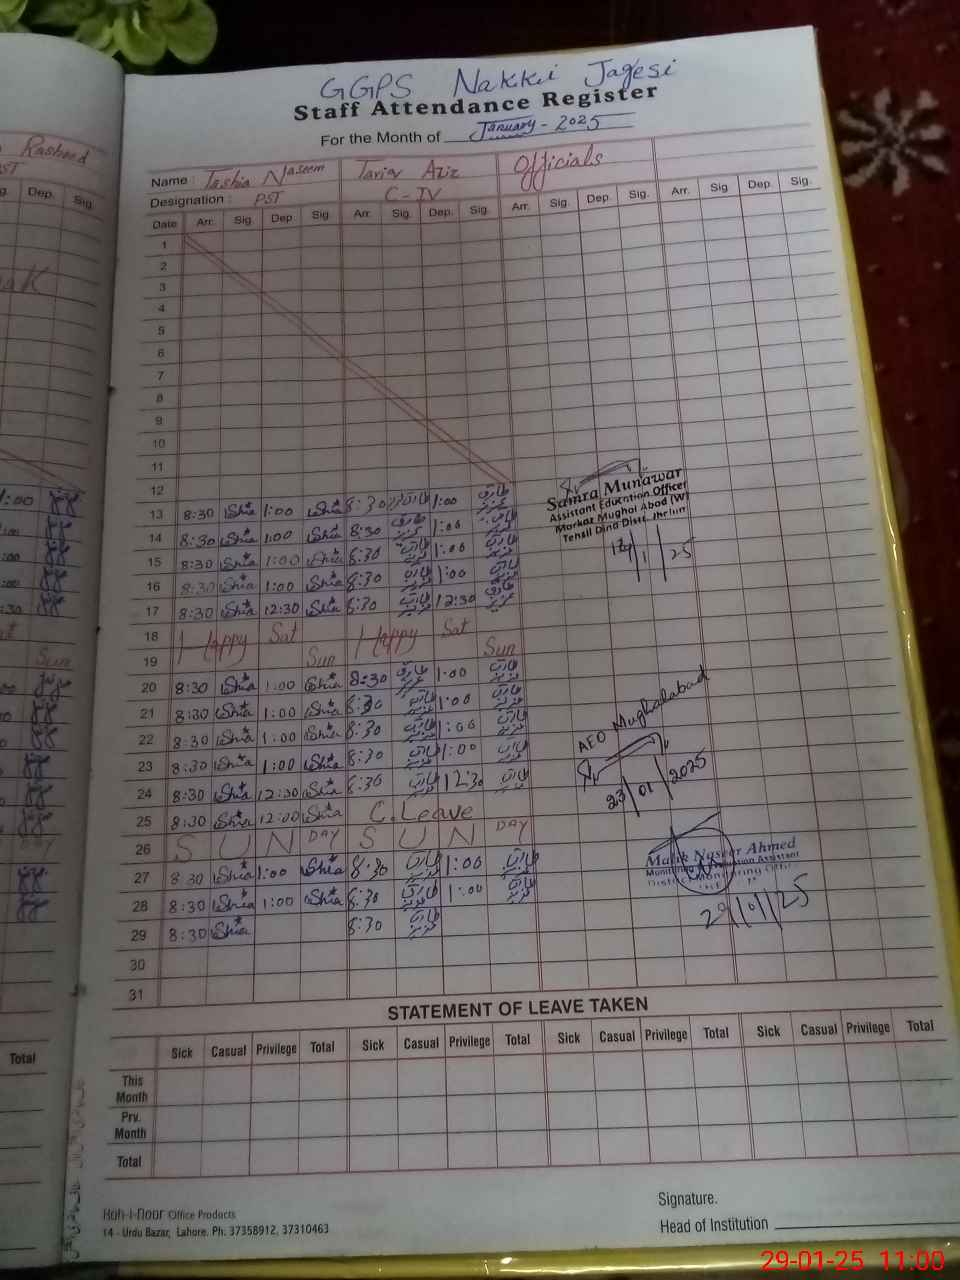 GGPS Nakki Jagesi
Staff Attendance Register
For the Month of January - 2025
Rasheed
PST
Dep. Sig.
Name : Tashia Naseem Tariq Aziz Officials
Designation : PST C-IV
Date Arr. Sig. Dep. Sig. Arr. Sig. Dep. Sig. Arr. Sig. Dep. Sig. Arr. Sig Dep. Sig.
1
2
3
4
5
6
7
8
9
10
11
12
13 8:30 Shia 1:00 Shia 8:30 طارق عزیز 1:00 طارق عزیز
14 8:30 Shia 1:00 Shia 8:30 طارق عزیز 1:00 طارق عزیز
15 8:30 Shia 1:00 Shia 8:30 طارق عزیز 1:00 طارق عزیز
16 8:30 Shia 1:00 Shia 8:30 طارق عزیز 1:00 طارق عزیز
17 8:30 Shia 12:30 Shia 8:30 طارق عزیز 12:30 طارق عزیز
18 Happy Sat Happy Sat
19 Sun Sun
20 8:30 Shia 1:00 Shia 8:30 طارق عزیز 1:00 طارق عزیز
21 8:30 Shia 1:00 Shia 8:30 طارق عزیز 1:00 طارق عزیز
22 8:30 Shia 1:00 Shia 8:30 طارق عزیز 1:00 طارق عزیز
23 8:30 Shia 1:00 Shia 8:30 طارق عزیز 1:00 طارق عزیز
24 8:30 Shia 12:30 Shia 8:30 طارق عزیز 12:30 طارق عزیز
25 8:30 Shia 12:00 Shia C. Leave
26 SUN DAY SUN DAY
27 8:30 Shia 1:00 Shia 8:30 طارق عزیز 1:00 طارق عزیز
28 8:30 Shia 1:00 Shia 8:30 طارق عزیز 1:00 طارق عزیز
29 8:30 Shia 8:30 طارق عزیز
30
31
Samra Munawar
Assistant Education Officer
Markaz Mughal Abad (W)
Tehsil Dina Distt. Jhelum
AEO Mughalabad
23/01/2025
Malik Naseer Ahmed
Monitoring Evaluation Assistant
District Monitoring Office
STATEMENT OF LEAVE TAKEN
Sick Casual Privilege Total Sick Casual Privilege Total Sick Casual Privilege Total Sick Casual Privilege Total
This Month
Prv. Month
Total
Total
Koh-i-noor Office Products
14 - Urdu Bazar, Lahore. Ph. 37358912, 37310463
Signature.
Head of Institution
29-01-25 11:00